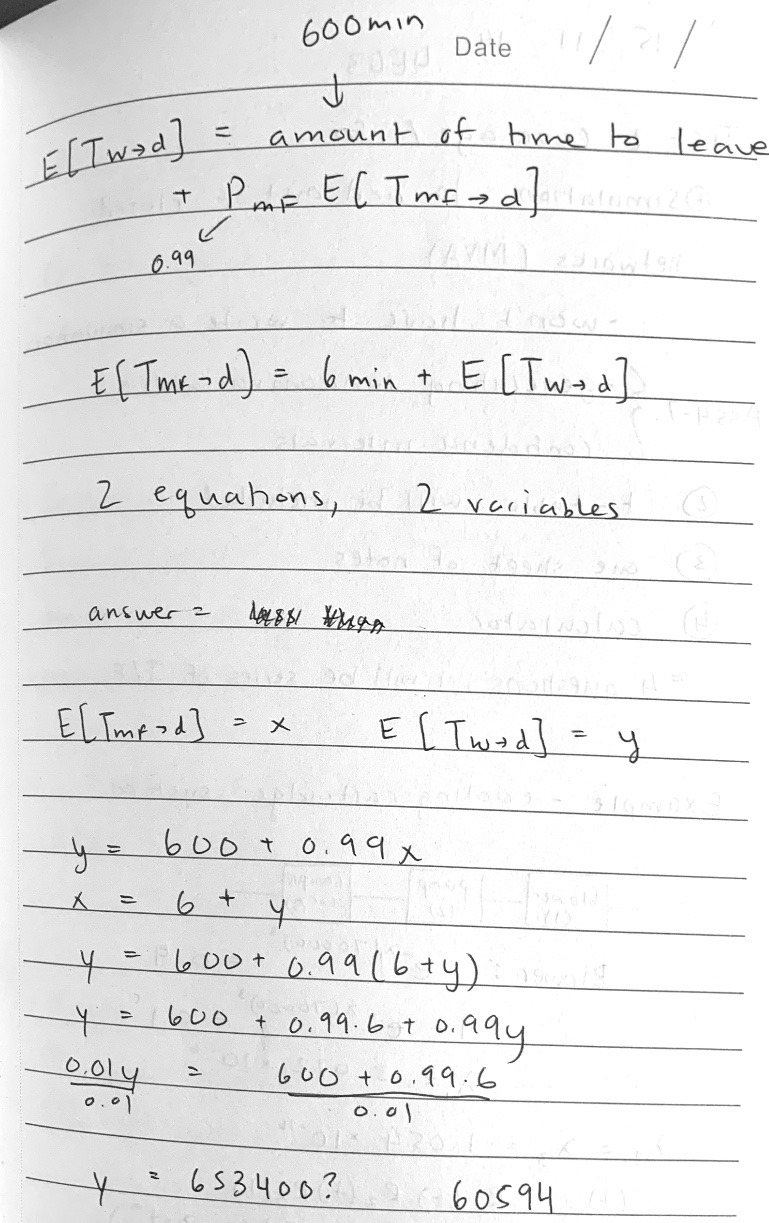 600min
Date / /
E[Tw→d] = amount of time to leave
+ PmF E[TmF→d]
0.99
E[TmF→d] = 6 min + E[Tw→d]
2 equations, 2 variables
answer =
E[TmF→d] = x E[Tw→d] = y
y = 600 + 0.99x
x = 6 + y
y = 600 + 0.99(6+y)
y = 600 + 0.99·6 + 0.99y
0.01y = 600 + 0.99·6
0.01 0.01
y = 653400? 60594